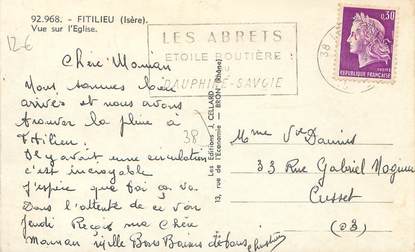 92.968. - FITILIEU (Isère).
Vue sur l'Eglise.
12€
LES ABRETS
ETOILE ROUTIÈRE
DU
DAUPHINÉ-SAVOIE
38
0,30
REPUBLIQUE FRANÇAISE
Chère Maman
Nous sommes bien
arrivés et nous avons
trouver la pluie à
Fitilieu.
Il y avait une circulation
c'est incroyable
J'espère que toi ça va.
Dans l'attente de ce
Jeudi Reçois ma Chère
Maman mille Bons Baisers de tous
Christine
38
Les Editions J. CELLARD
13, rue de l'Economie - BRON (Rhône)
Mme Vve
33 Rue Gabriel
Cusset
(03)